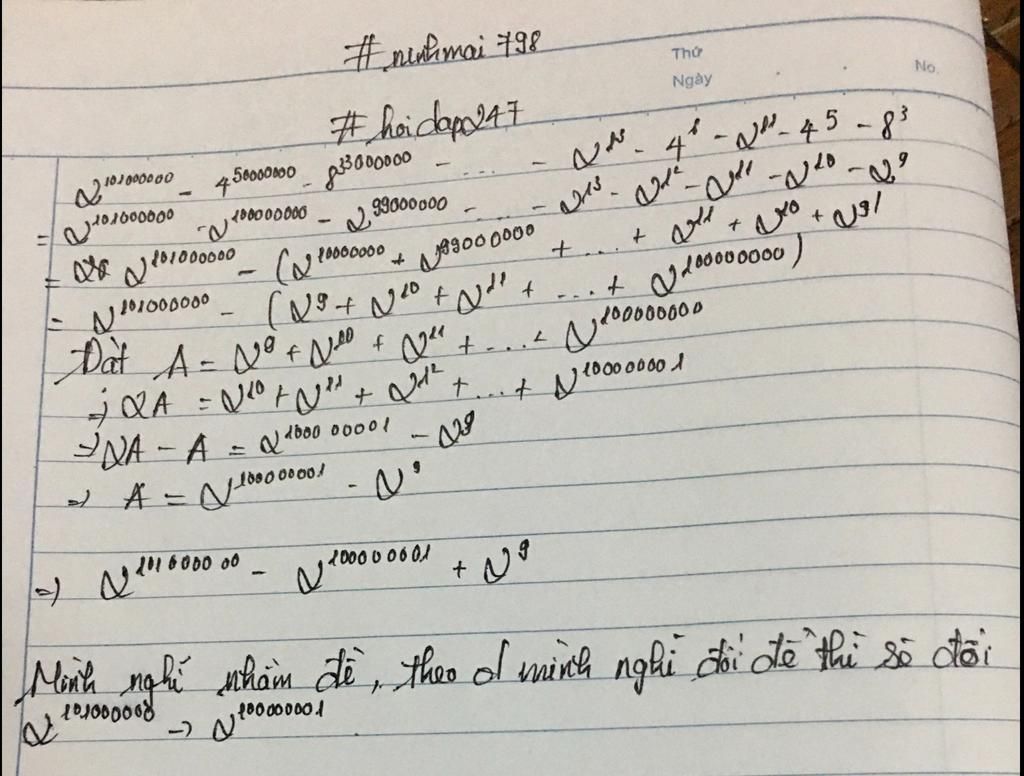 #ninhmai798
Thứ
Ngày
No.
#hoidap247
2^101000000 - 4^50000000 - 8^33000000 - ... - 2^13 - 4^6 - 2^11 - 4^5 - 8^3
= 2^101000000 - 2^100000000 - 2^99000000 - ... - 2^13 - 2^12 - 2^11 - 2^10 - 2^9
= 2^101000000 - (2^10000000 + 2^99000000 + ... + 2^11 + 2^10 + 2^9)
= 2^101000000 - (2^9 + 2^10 + 2^11 + ... + 2^100000000)
Đặt A = 2^9 + 2^10 + 2^11 + ... + 2^100000000
=> 2A = 2^10 + 2^11 + 2^12 + ... + 2^100000001
=> 2A - A = 2^100000001 - 2^9
=> A = 2^100000001 - 2^9
=> 2^101000000 - 2^100000001 + 2^9
Mình nghĩ nhầm đề, theo d mình nghĩ đổi đề thì số đổi
2^101000000 -> 2^100000001